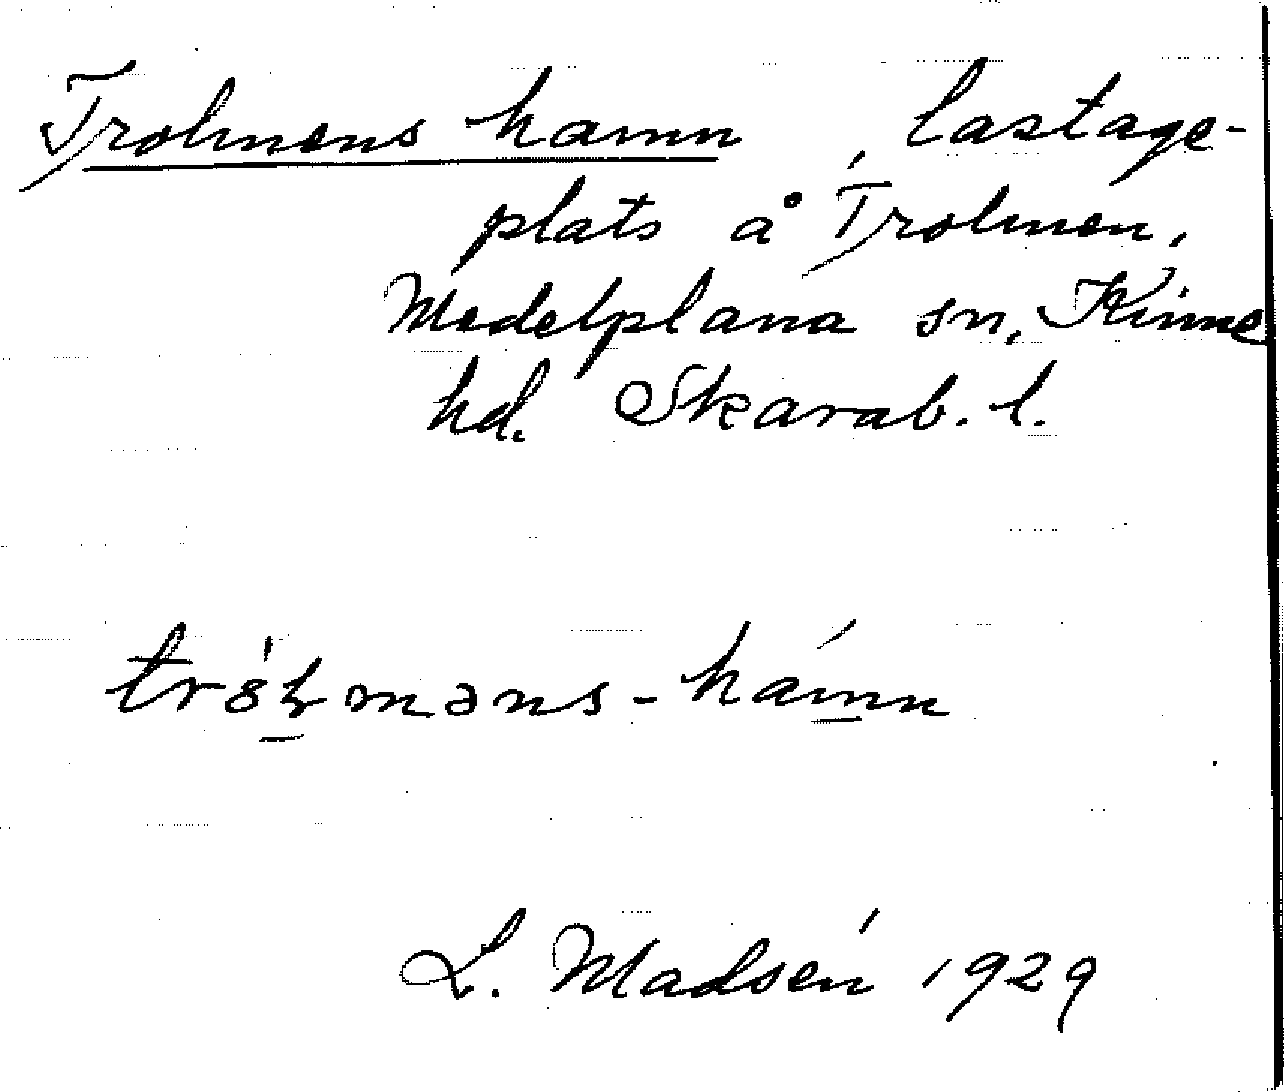 Trolmens hamn, lastage-
plats å Trolmen,
Medelplana sn, Kinne
hd. Skarab. l.
L. Madsén 1929